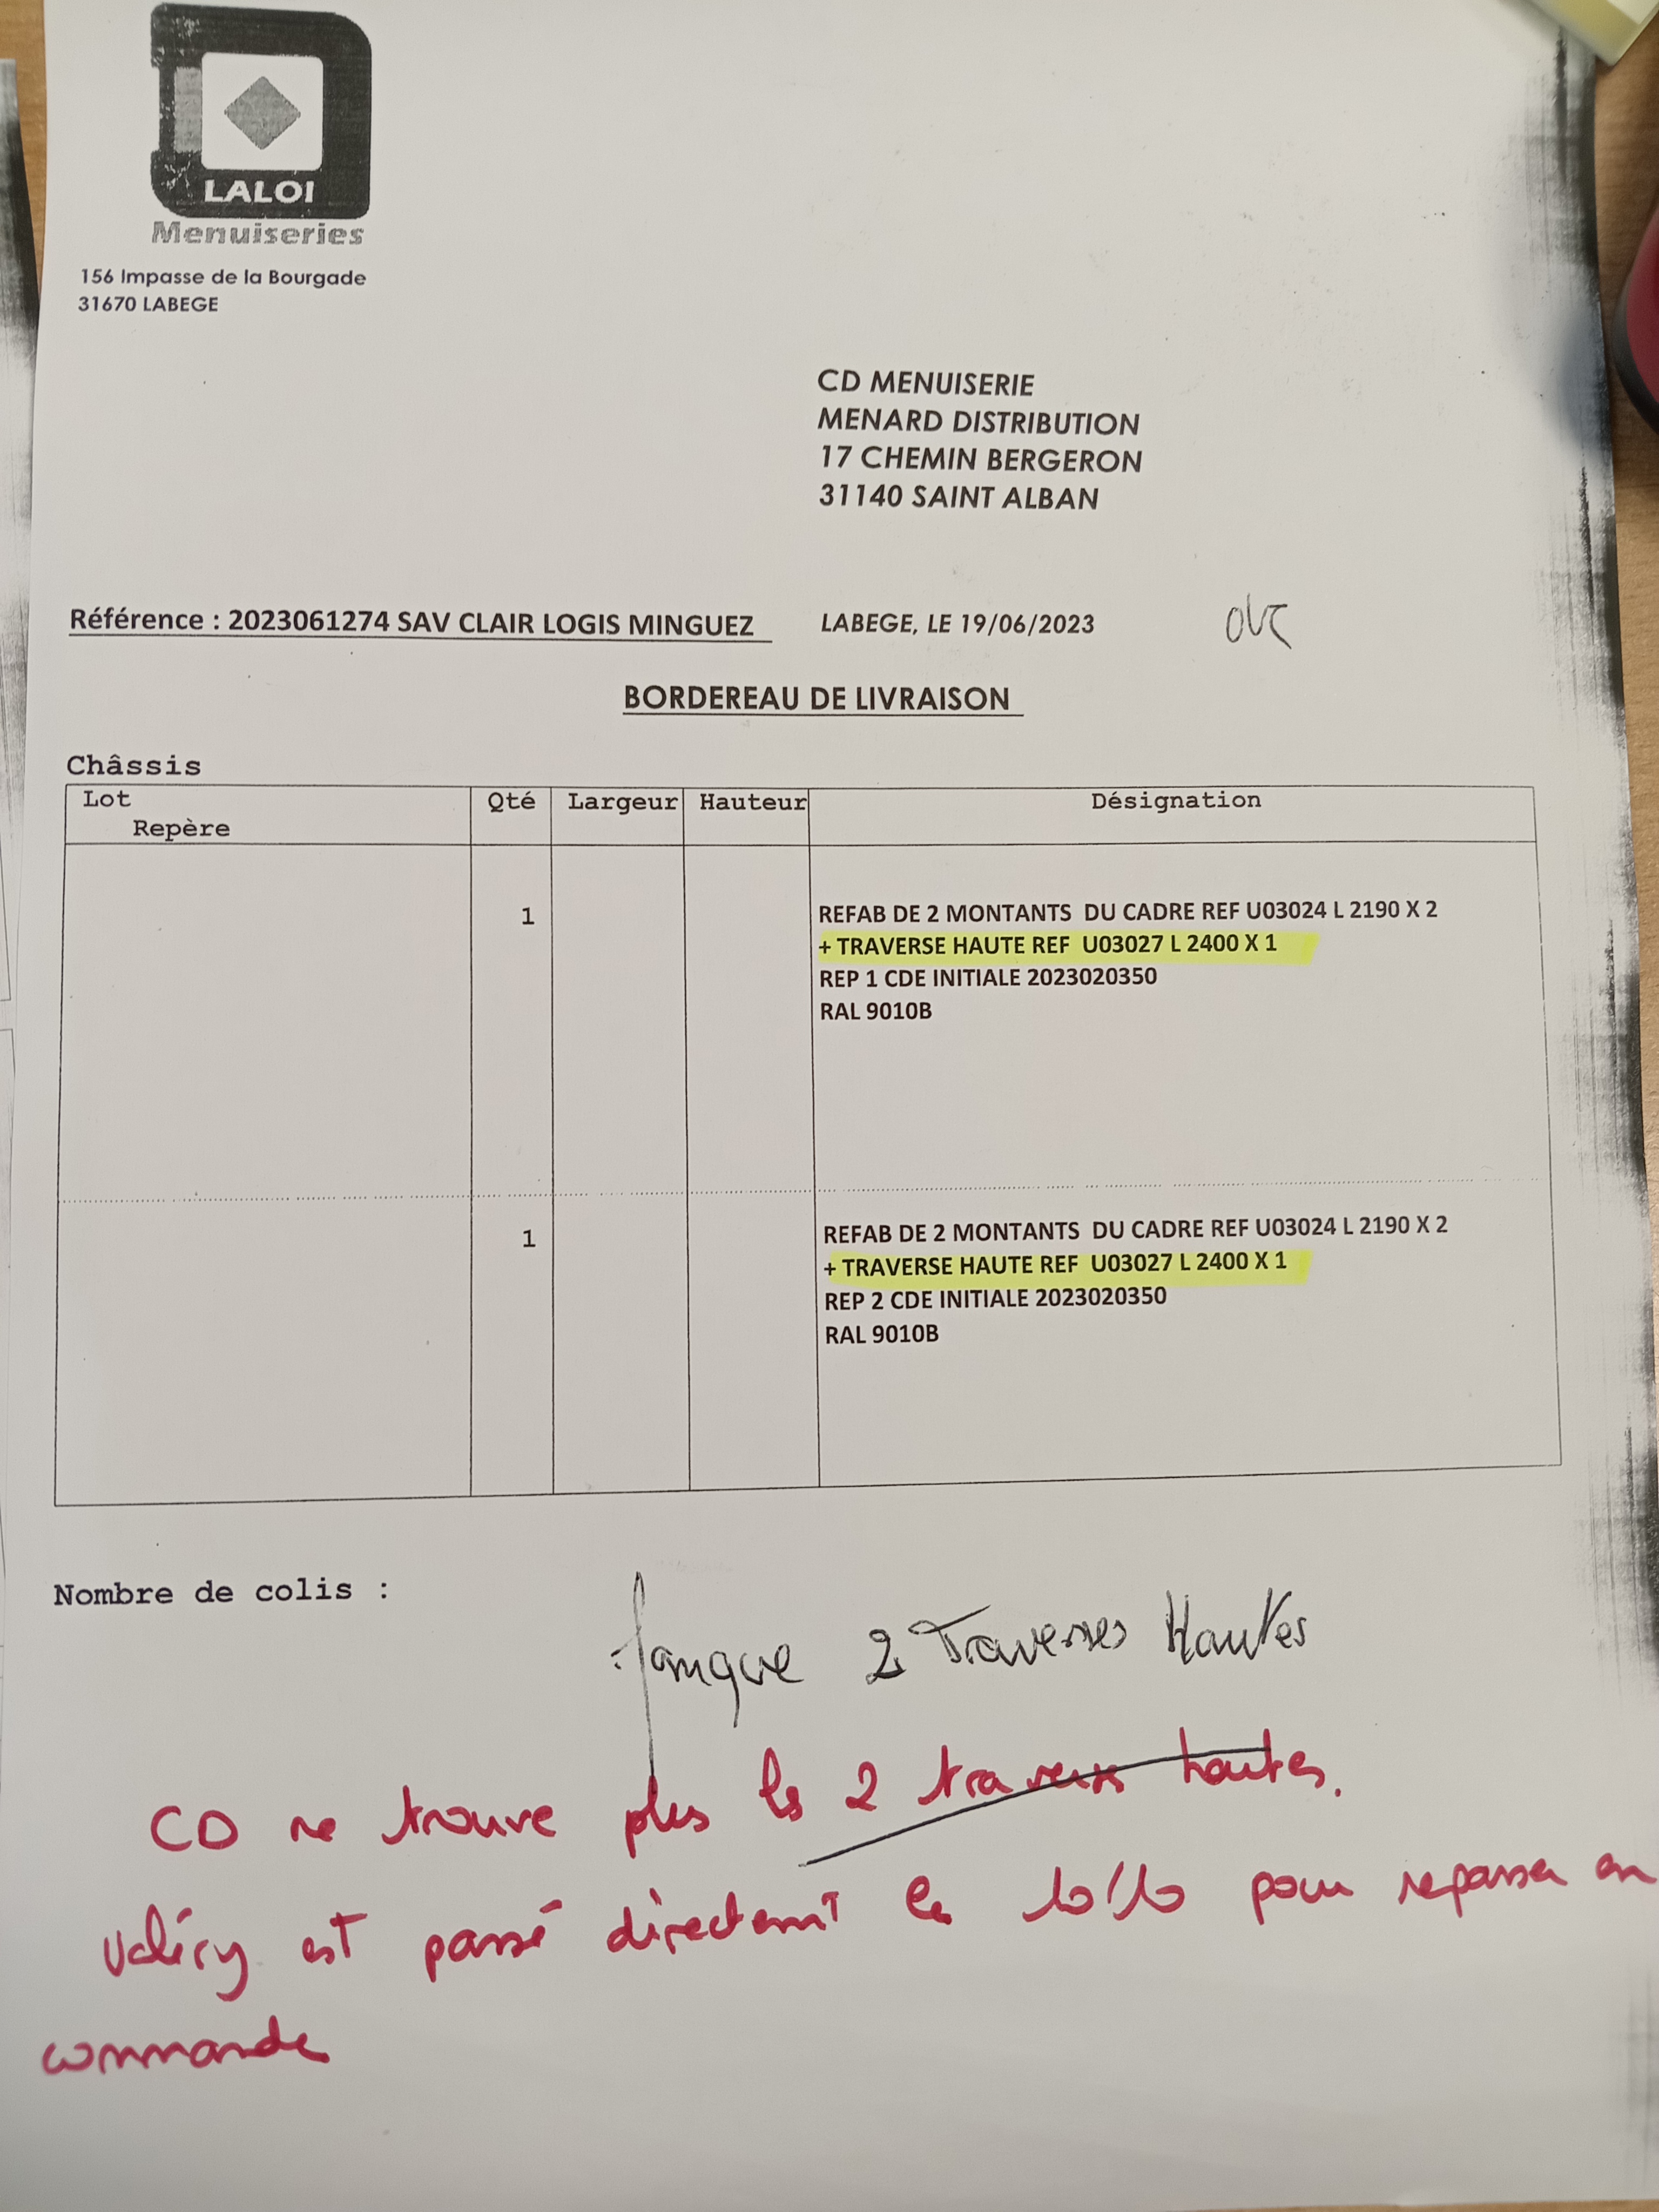 LALOI
Menuiseries
156 Impasse de la Bourgade
31670 LABEGE
CD MENUISERIE
MENARD DISTRIBUTION
17 CHEMIN BERGERON
31140 SAINT ALBAN
Référence : 2023061274 SAV CLAIR LOGIS MINGUEZ LABEGE, LE 19/06/2023
BORDEREAU DE LIVRAISON
Châssis
Lot Qté Largeur Hauteur Désignation
Repère
1 REFAB DE 2 MONTANTS DU CADRE REF U03024 L 2190 X 2
+ TRAVERSE HAUTE REF U03027 L 2400 X 1
REP 1 CDE INITIALE 2023020350
RAL 9010B
1 REFAB DE 2 MONTANTS DU CADRE REF U03024 L 2190 X 2
+ TRAVERSE HAUTE REF U03027 L 2400 X 1
REP 2 CDE INITIALE 2023020350
RAL 9010B
Nombre de colis :
Manque 2 Traverses Hautes
CD ne trouve plus les 2 traverses hautes.
Valéry est passé directemt pour repasser en
commande